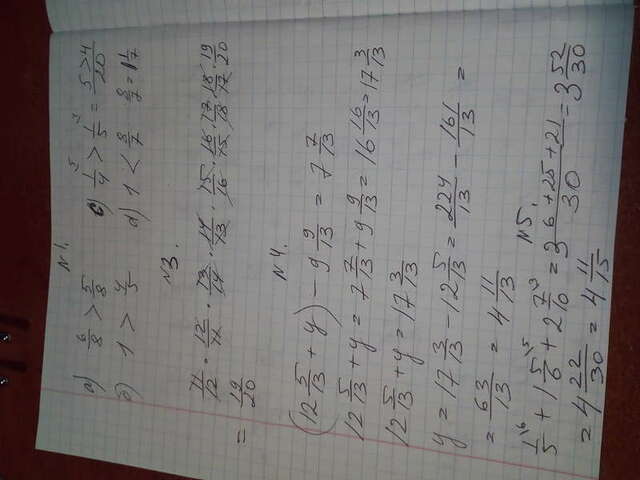 N1.
a) 6/8 > 5/8 c) 1/4 ⁵ > 1/5 ⁴ = 5>4/20
б) 1 > 4/5 d) 1 < 8/7 8/7 = 1 1/7
N3.
11/12 · 12/11 · 13/14 · 14/13 · 15/16 · 16/15 · 17/18 · 18/17 · 19/20
= 19/20
N4.
(12 5/13 + y) - 9 9/13 = 7 7/13
12 5/13 + y = 7 7/13 + 9 9/13 = 16 16/13 = 17 3/13
12 5/13 + y = 17 3/13
y = 17 3/13 - 12 5/13 = 224/13 - 161/13 =
= 63/13 = 4 11/13
N5.
1/5 ⁶ + 1 5/6 ⁵ + 2 7/10 ³ = 3 6+25+21/30 = 3 52/30
= 4 22/30 = 4 11/15